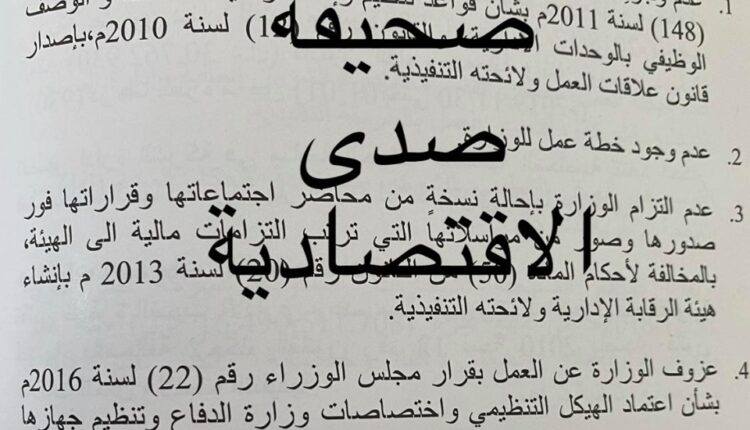 (148) لسنة 2011م بشأن قواعد
الوظيفي بالوحدات لسنة 2010م،بإصدار
قانون علاقات العمل ولائحته التنفيذية.
2. عدم وجود خطة عمل للوزارة.
3. عدم التزام الوزارة بإحالة نسخة من محاضر اجتماعاتها وقراراتها فور
صدورها وصور من مراسلاتها التي ترتب التزامات مالية الى الهيئة،
بالمخالفة لأحكام المادة (50) من القانون رقم (20) لسنة 2013 م بإنشاء
هيئة الرقابة الإدارية ولائحته التنفيذية.
4. عزوف الوزارة عن العمل بقرار مجلس الوزراء رقم (22) لسنة 2016م
بشأن اعتماد الهيكل التنظيمي واختصاصات وزارة الدفاع وتنظيم جهازها
صحيفة
صدى
الاقتصادية